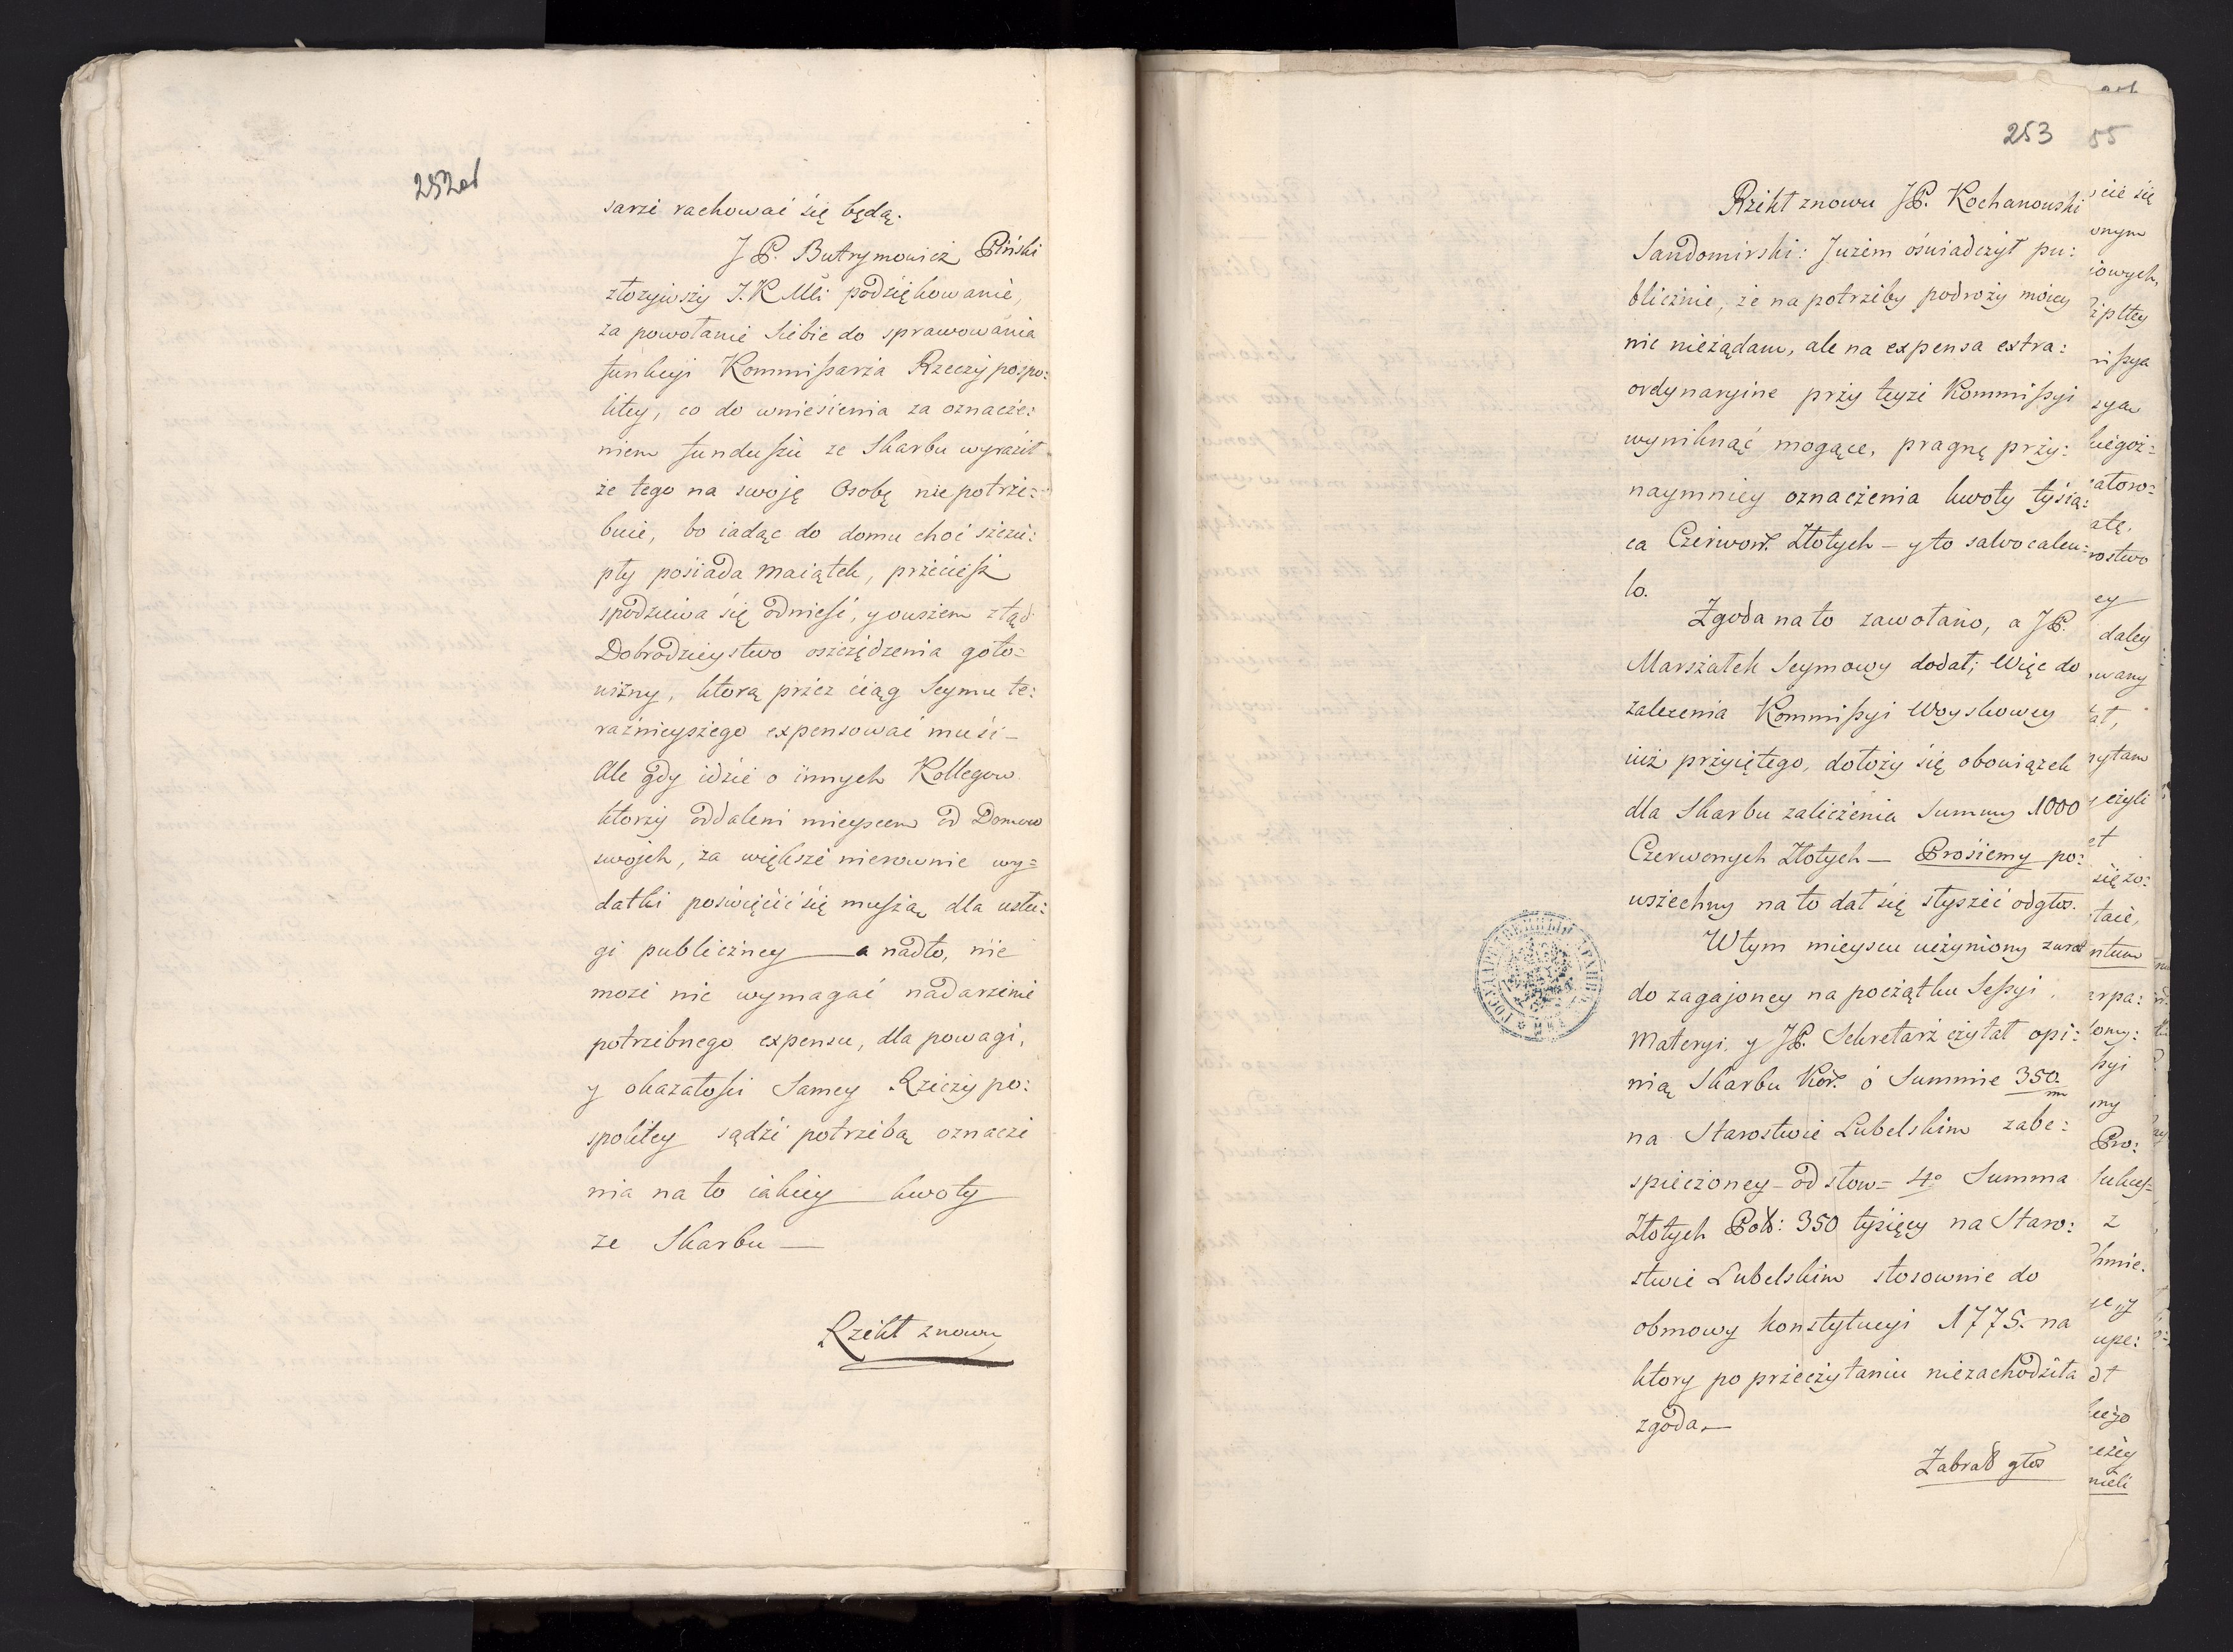 252v
sarze rachować się będą.
JP. Butrymowicz Piński
złożywszy J.K Mci podziękowanie,
za powołanie Siebie do sprawowania
funkcyi Kommissarza Rzeczypospo:
litey, co do wniesienia za oznacze:
niem funduszu ze Skarbu wyraził
że tego na swoję Osobę nie potrze:
buie, bo iadąc do domu choć szczu:
pły posiada Maiątek, przecież
spodziewa się odnieść, y owszem ztąd
Dobrodzieystwo oszczędzenia goto=
wizny, ktorą przez ciąg Seymu te:
raźnieyszego expensować musi –
Ale gdy idzie o innych Kollegow
ktorzy oddaleni mieyscem od Domow
swojch, za większe nierownie wy=
datki poświęcić się muszą, dla usłu:
gi publiczney — a nadto, nie
może nic wymagać nadarzenie
potrzebnego expensu, dla powagi,
y okazałości Samey Rzeczypo:
spolitey sądzi potrzebą oznacze
nia na to iakiey kwoty
ze Skarbu —
Rzekł znowu
253
Rzekł znowu JP. Kochanowski
Sandomirski: Jużem oświadczył pu:
blicznie, że na potrzeby podroży moiey
nic nieżądam, ale na expensa extra:
ordynaryine przy teyże Kommissyi
wyniknąć mogące, pragnę przy:
naymniey oznaczenia kwoty tysią:
ca Czerwon. Złotych – y to salvo calcu:
lo.
Zgoda na to zawołano, a JP.
Marszałek Seymowy dodał; Więc do
zalecenia Kommissyi Woyskowey
iuż przyiętego, dołoży się obowiązek
dla Skarbu zaliczenia Summy 1000
Czerwonych Złotych — Prosiemy po:
wszechny na to dał się słyszeć odgłos.
W tym mieyscu uczyniony zwrot
do zagajoney na początku Sessyi
Materyi, y JP. Sekretarz czytał opi:
nią Skarbu Kor. o Summie 350.
m
na Starostwie Lubelskim zabe:
spieczoney – od słow = 4º Summa
Złotych Pols: 350 tysięcy na Staro:
stwie Lubelskim stosownie do
obmowy konstytucyi 1775. na
ktory po przeczytaniu niezachodziła
zgoda. —
Zabrał głos
55